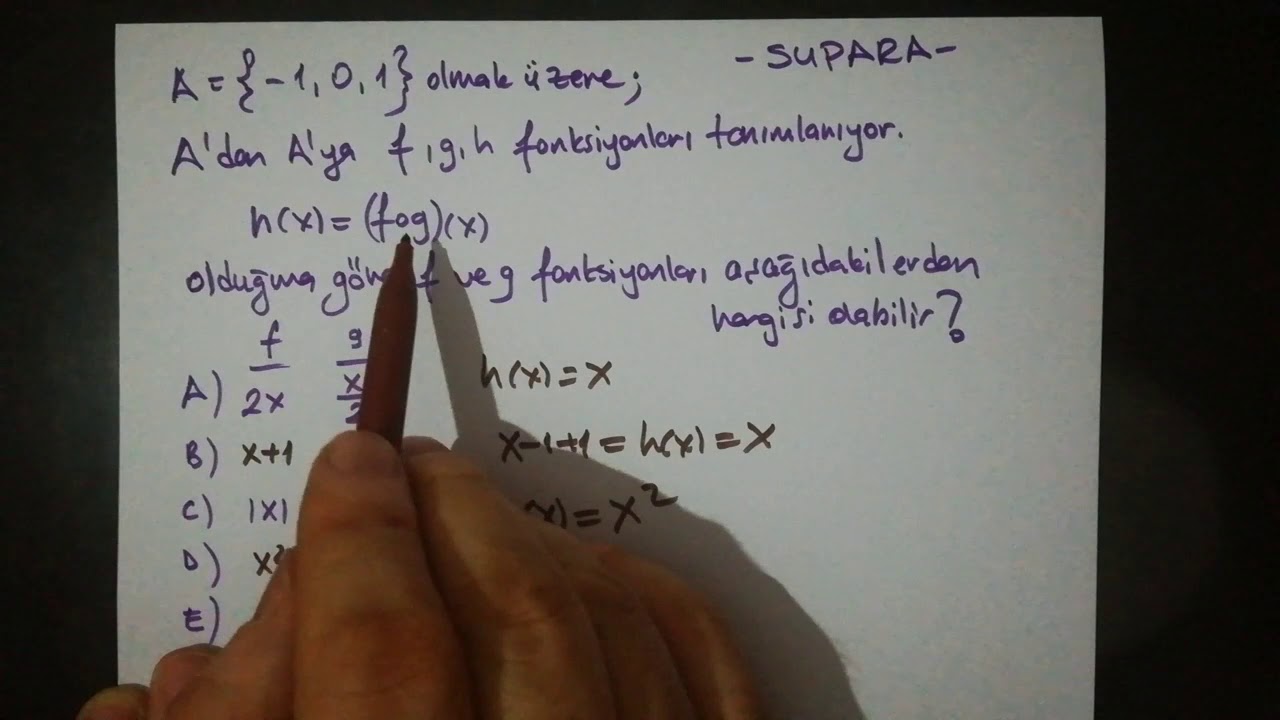 -SUPARA-
A = {-1, 0, 1} olmak üzere;
A'dan A'ya f, g, h fonksiyonları tanımlanıyor.
h(x) = (fog)(x)
olduğuna f ve g fonksiyonları aşağıdakilerden
hangisi olabilir?
f g
A) 2x x h(x) = x
B) x+1 x-1+1 = h(x) = x
C) |x| x) = x²
D) x²
E)